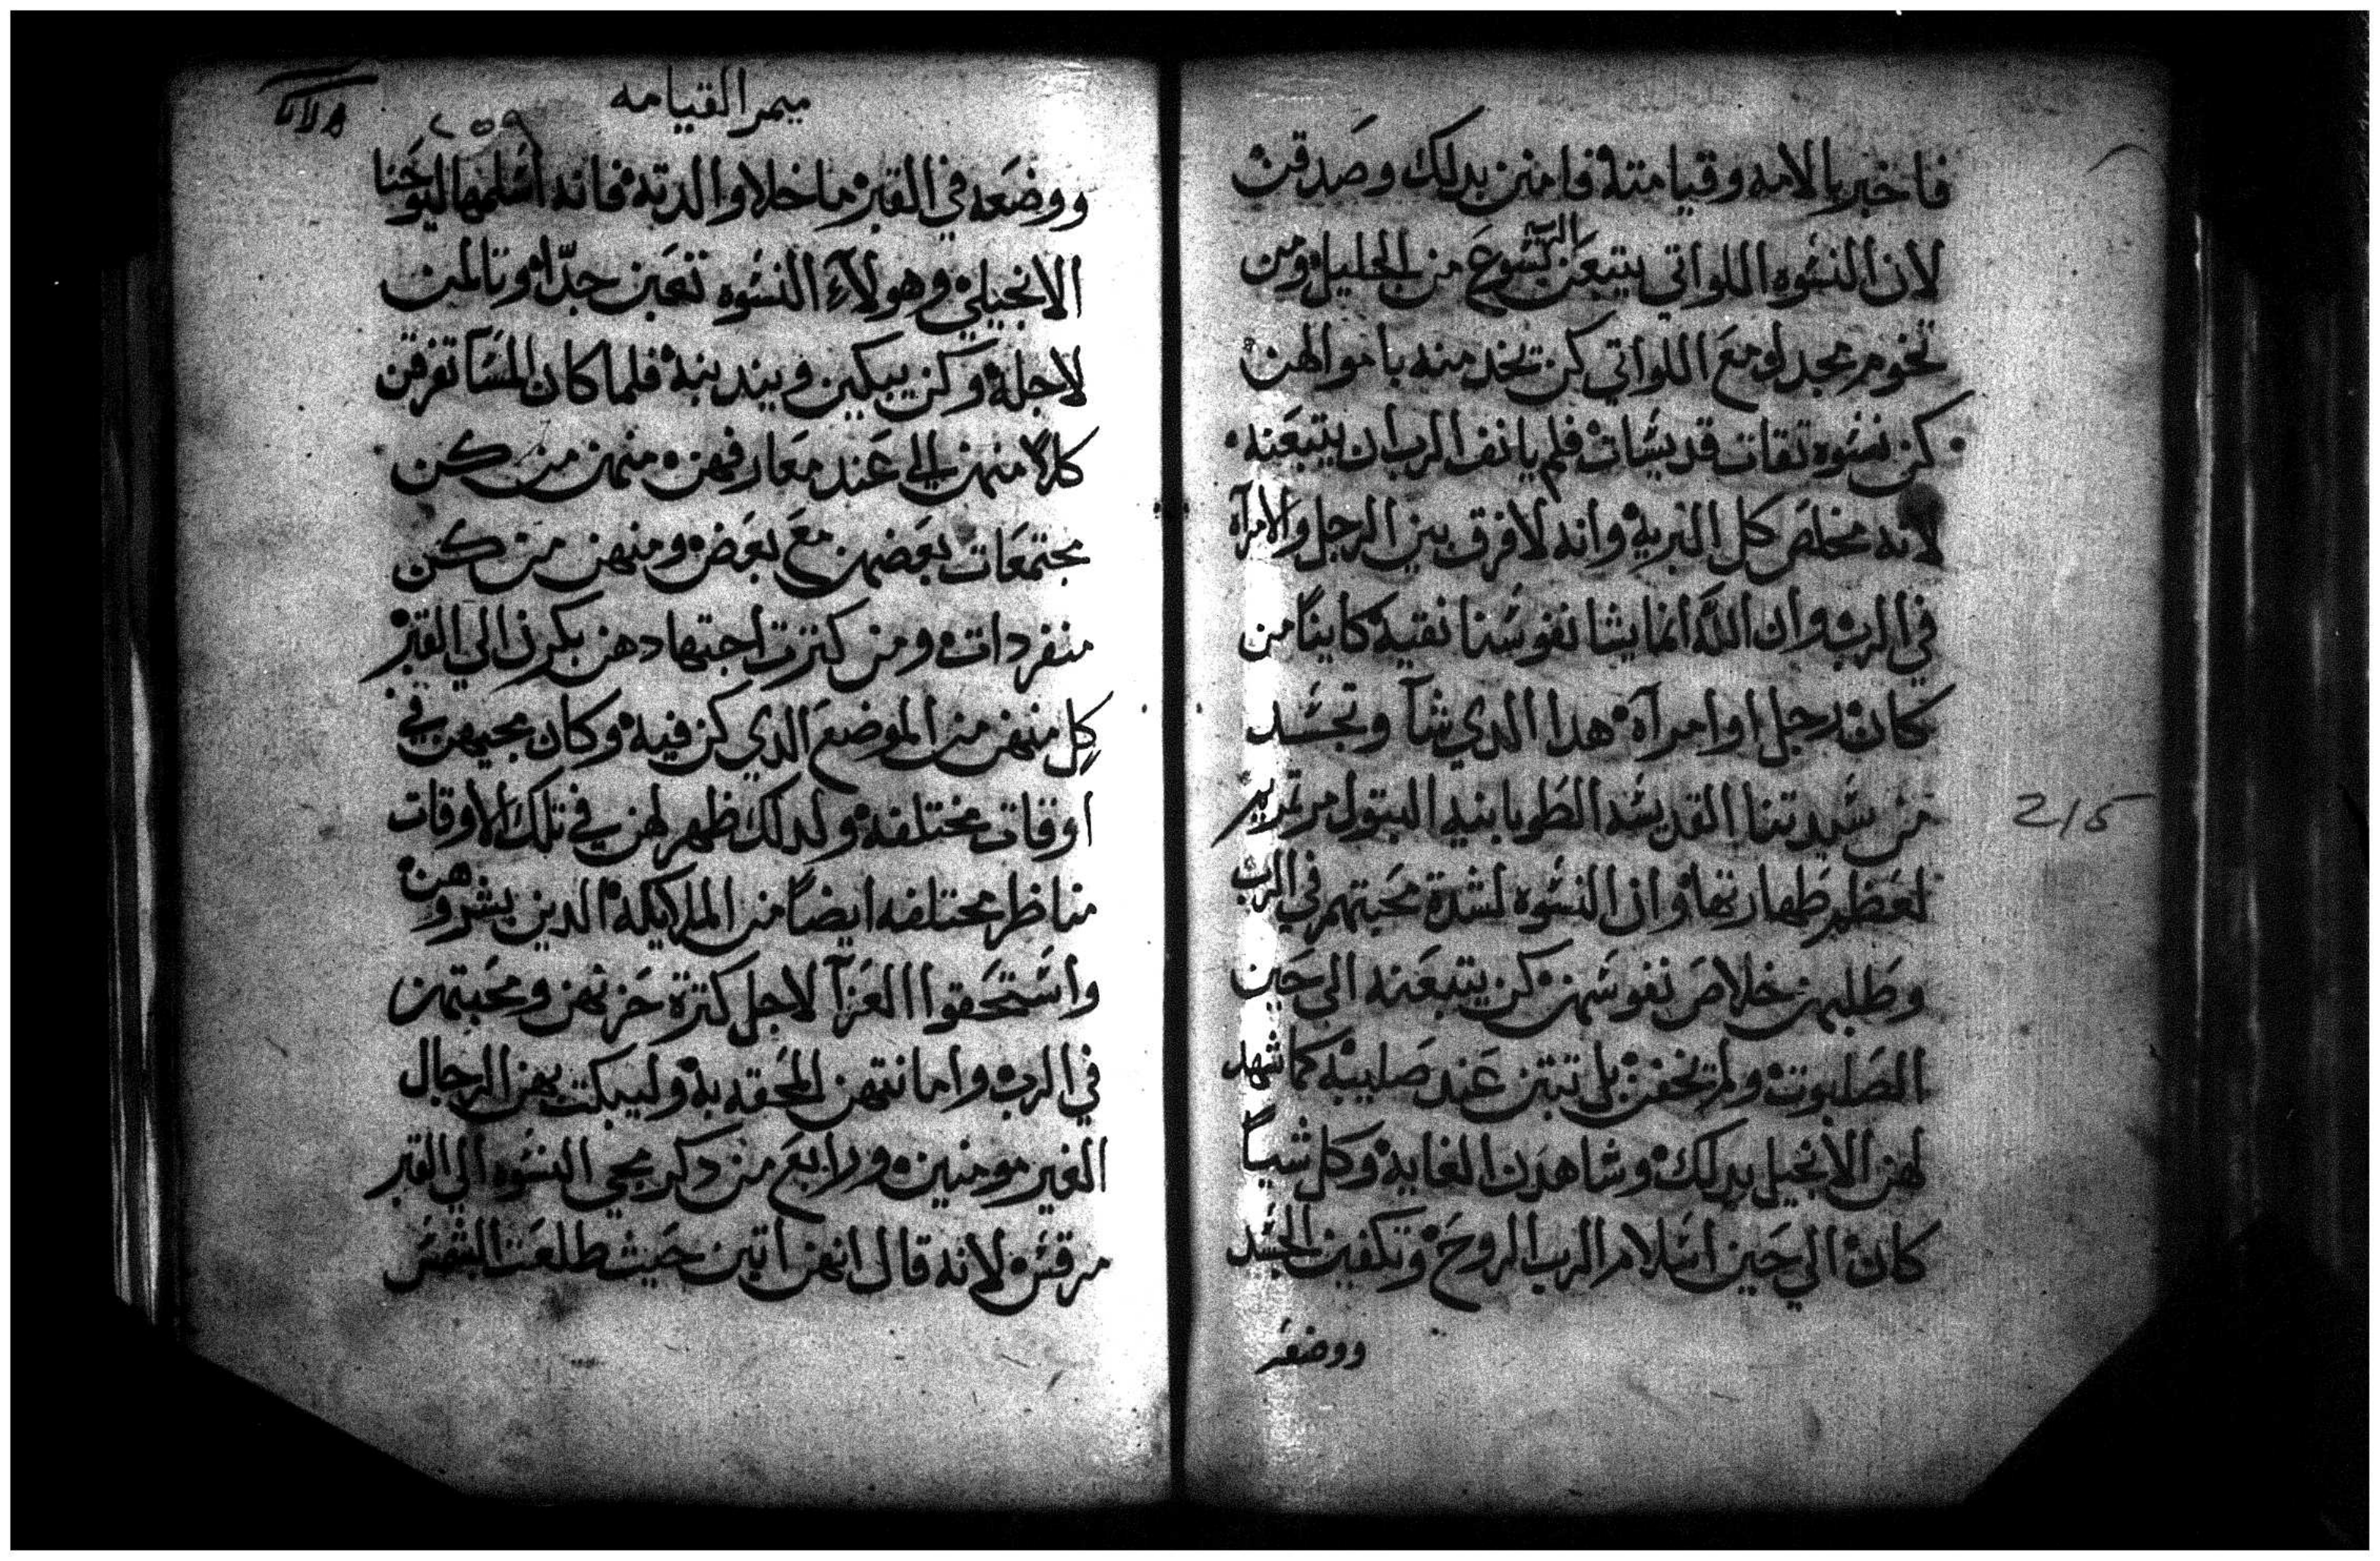 فاخبر بالامه وقيامته فامنين بدلك وصدقت
لان النسوه اللواتي يتبعن الرب يسوع من الجليل ومن
تخوم مجدلو مع اللواتي كن تخدمنه باموالهن
كن نسوه تقات قديسات فلم يانف الرب ان يتبعنه
لانه مخلص كل البريه وانه لا فرق بين الرجل والامرآه
في الرب وان الله انما يشا نفوسنا نقيه كاينًا من
كان رجل او امرآه هدا الدي شآ وتجسد
من سيدتنا القديسه الطوبانيه البتول مرتمريم
لعظيم طهارتها وان النسوه لشدة محبتهم في الرب
وطلبهن خلاص نفوسهن كن يتبعنه الي حين
الصلبوت ولم تخفن بل تبتن عند صليبه كما شهد
لهن الانجيل بدلك وشاهدن الغايه وكل شياً
كان الي حين اسلام الرب الروح وتكفين الجسد
ووضعه
215
ميمر القيامه
٢٥٩
ووضعه في القبر ما خلا والدته فانه اسلمها ليوحنا
الانجيلي وهولآءِ النسوه تعبن جدّا وتالمن
لاجله وكن يبكين ويندبنه فلما كان المسآ تفرقن
كلاً منهن الي عند معارفهن منهن من كن
مجتمعات بعضهن مع بعض ومنهن من كن
منفردات ومن كترت اجتهادهن بكرن الي القبر
كل منهن من الموضع الدي كن فيه وكان مجيهن في
اوقات مختلفه ولدلك ظهر لهن في تلك الاوقات
مناظر مختلفه ايضاً من الملايكه الدين بشروهن
واستحقوا العزآ لاجل كترة حزنهن ومحبتهن
في الرب وامانتهن المحقه به وليبكت بهن الرجال
الغير مومنين ورابع من دكر مجي النسوه الي القبر
مرقس لانه قال انهن اتين حيث طلعت الشمس